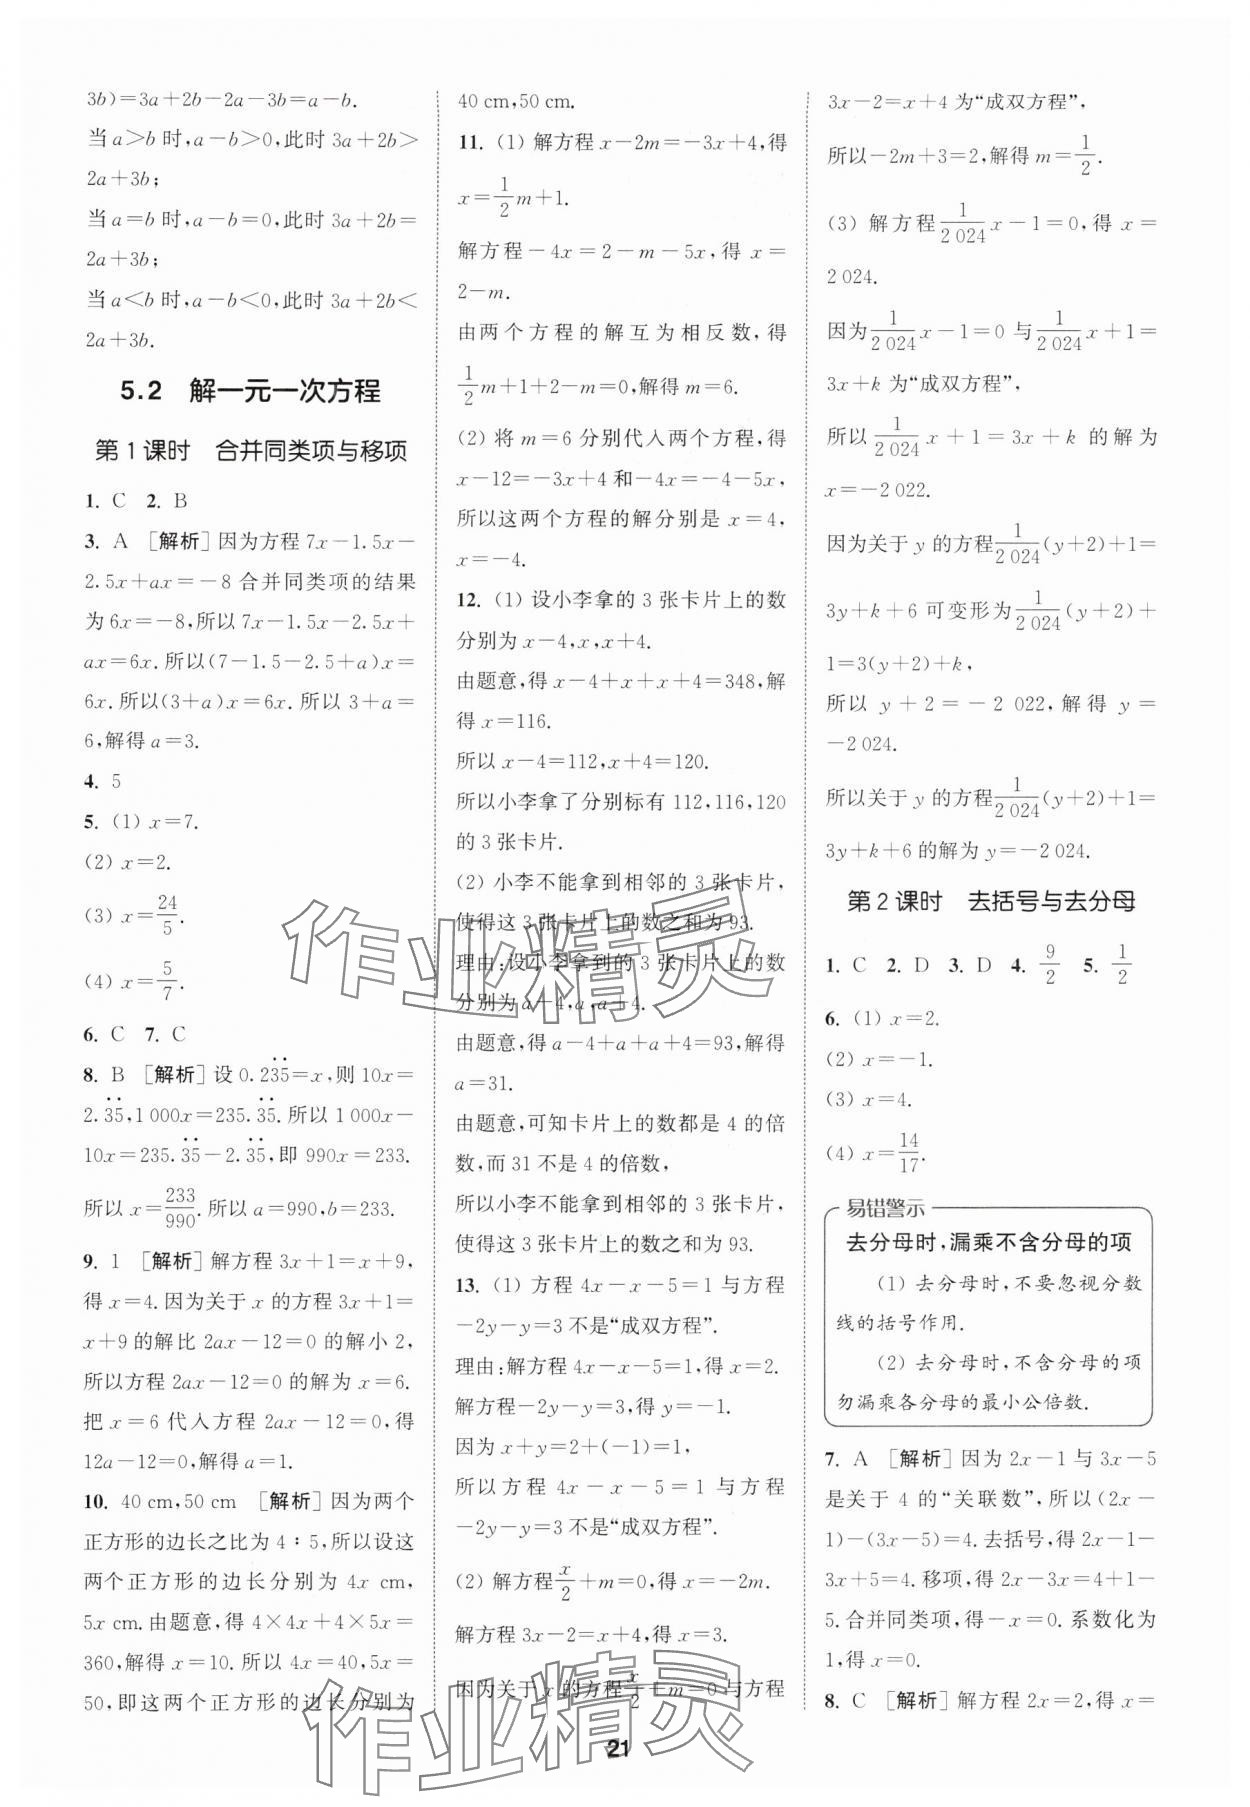 3b)=3a+2b-2a-3b=a-b.
当 a>b 时,a-b>0,此时 3a+2b>
2a+3b;
当 a=b 时,a-b=0,此时 3a+2b=
2a+3b;
当 a<b 时,a-b<0,此时 3a+2b<
2a+3b.
5.2 解一元一次方程
第 1 课时 合并同类项与移项
1. C 2. B
3. A [解析]因为方程 7x-1.5x-
2.5x+ax=-8 合并同类项的结果
为 6x=-8,所以 7x-1.5x-2.5x+
ax=6x.所以(7-1.5-2.5+a)x=
6x.所以(3+a)x=6x.所以 3+a=
6,解得 a=3.
4. 5
5. (1) x=7.
(2) x=2.
(3) x=24/5.
(4) x=5/7.
6. C 7. C
8. B [解析]设 0.23̇5̇=x,则 10x=
2.3̇5̇,1 000x=235.3̇5̇.所以 1 000x-
10x=235.3̇5̇-2.3̇5̇,即 990x=233.
所以 x=233/990.所以 a=990,b=233.
9. 1 [解析]解方程 3x+1=x+9,
得 x=4.因为关于 x 的方程 3x+1=
x+9 的解比 2ax-12=0 的解小 2,
所以方程 2ax-12=0 的解为 x=6.
把 x=6 代入方程 2ax-12=0,得
12a-12=0,解得 a=1.
10. 40 cm,50 cm [解析]因为两个
正方形的边长之比为 4:5,所以设这
两个正方形的边长分别为 4x cm,
5x cm.由题意,得 4×4x+4×5x=
360,解得 x=10.所以 4x=40,5x=
50,即这两个正方形的边长分别为
40 cm,50 cm.
11. (1) 解方程 x-2m=-3x+4,得
x=1/2m+1.
解方程-4x=2-m-5x,得 x=
2-m.
由两个方程的解互为相反数,得
1/2m+1+2-m=0,解得 m=6.
(2) 将 m=6 分别代入两个方程,得
x-12=-3x+4 和-4x=-4-5x,
所以这两个方程的解分别是 x=4,
x=-4.
12. (1) 设小李拿的 3 张卡片上的数
分别为 x-4,x,x+4.
由题意,得 x-4+x+x+4=348,解
得 x=116.
所以 x-4=112,x+4=120.
所以小李拿了分别标有 112,116,120
的 3 张卡片.
(2) 小李不能拿到相邻的 3 张卡片,
使得这 3 张卡片上的数之和为 93.
理由:设小李拿到的 3 张卡片上的数
分别为 a-4,a,a+4.
由题意,得 a-4+a+a+4=93,解得
a=31.
由题意,可知卡片上的数都是 4 的倍
数,而 31 不是 4 的倍数,
所以小李不能拿到相邻的 3 张卡片,
使得这 3 张卡片上的数之和为 93.
13. (1) 方程 4x-x-5=1 与方程
-2y-y=3 不是“成双方程”.
理由:解方程 4x-x-5=1,得 x=2.
解方程-2y-y=3,得 y=-1.
因为 x+y=2+(-1)=1,
所以方程 4x-x-5=1 与方程
-2y-y=3 不是“成双方程”.
(2) 解方程x/2+m=0,得 x=-2m.
解方程 3x-2=x+4,得 x=3.
因为关于 x 的方程x/2+m=0 与方程
3x-2=x+4 为“成双方程”,
所以-2m+3=2,解得 m=1/2.
(3) 解方程1/2 024x-1=0,得 x=
2 024.
因为1/2 024x-1=0 与1/2 024x+1=
3x+k 为“成双方程”,
所以1/2 024x+1=3x+k 的解为
x=-2 022.
因为关于 y 的方程1/2 024(y+2)+1=
3y+k+6 可变形为1/2 024(y+2)+
1=3(y+2)+k,
所以 y+2=-2 022,解得 y=
-2 024.
所以关于 y 的方程1/2 024(y+2)+1=
3y+k+6 的解为 y=-2 024.
第 2 课时 去括号与去分母
1. C 2. D 3. D 4. 9/2 5. 1/2
6. (1) x=2.
(2) x=-1.
(3) x=4.
(4) x=14/17.
易错警示
去分母时,漏乘不含分母的项
(1) 去分母时,不要忽视分数
线的括号作用.
(2) 去分母时,不含分母的项
勿漏乘各分母的最小公倍数.
7. A [解析]因为 2x-1 与 3x-5
是关于 4 的“关联数”,所以(2x-
1)-(3x-5)=4.去括号,得 2x-1-
3x+5=4.移项,得 2x-3x=4+1-
5.合并同类项,得-x=0.系数化为
1,得 x=0.
8. C [解析]解方程 2x=2,得 x=
21
作业精灵
作业精灵